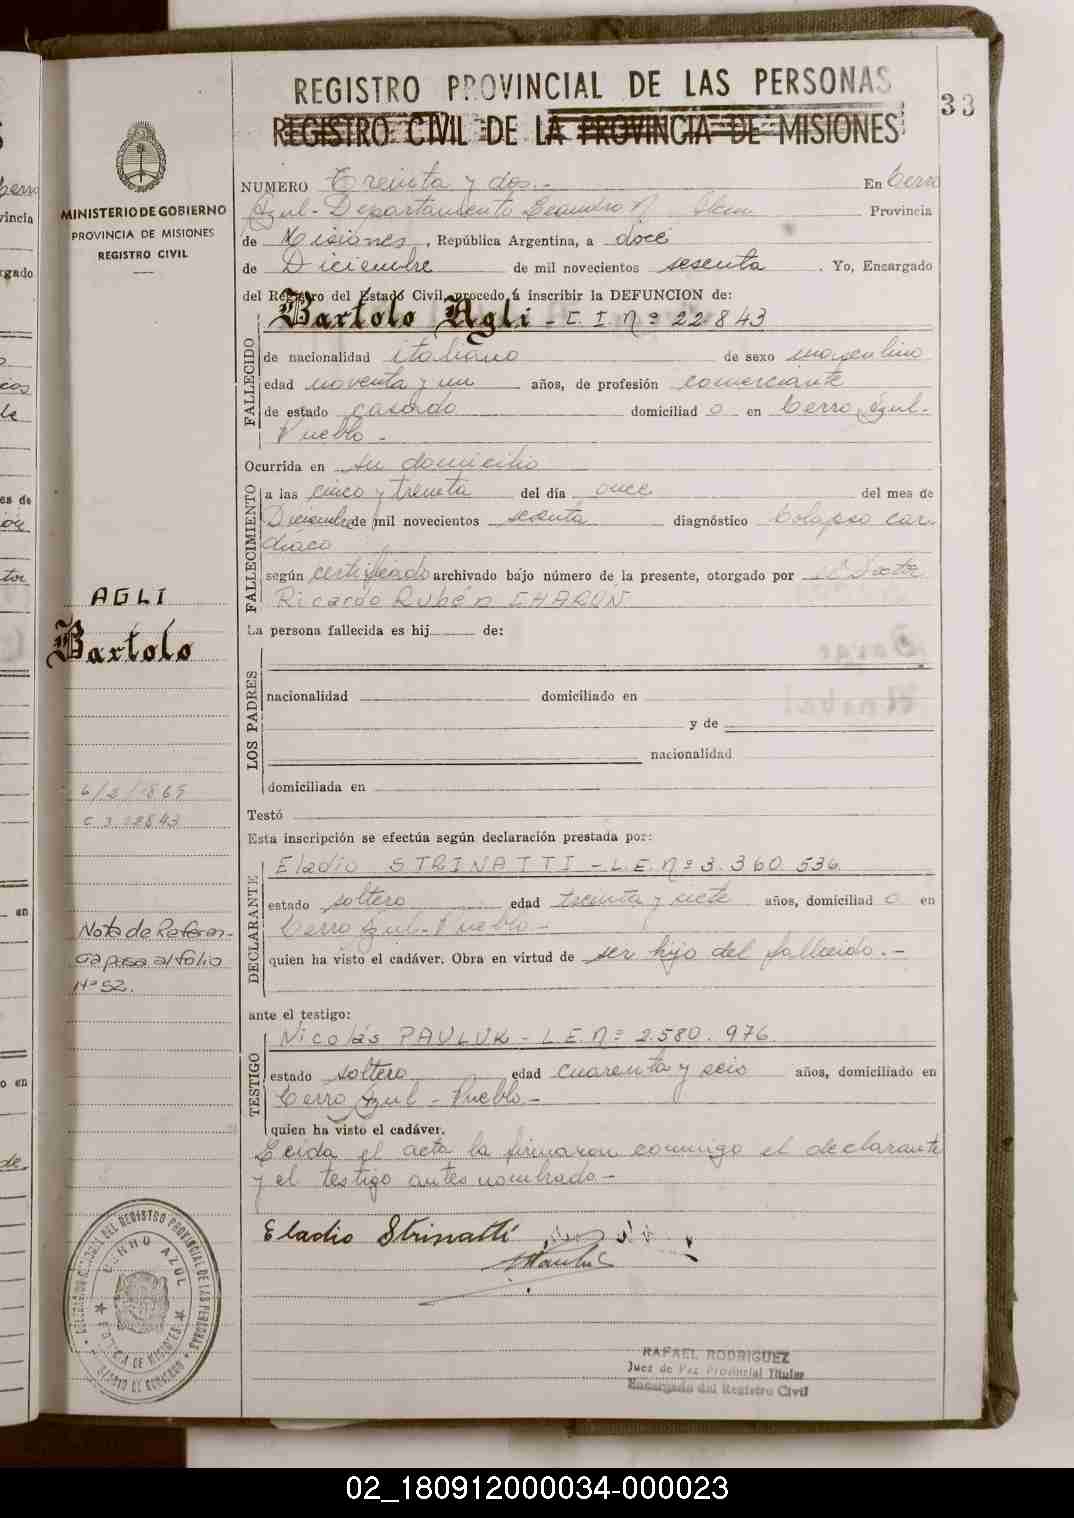 REGISTRO PROVINCIAL DE LAS PERSONAS
REGISTRO CIVIL DE LA PROVINCIA DE MISIONES
33
MINISTERIO DE GOBIERNO
PROVINCIA DE MISIONES
REGISTRO CIVIL
NUMERO Treinta y dos.- En Cerro
Azul - Departamento Leandro N. Alem Provincia
de Misiones, República Argentina, a doce
de Diciembre de mil novecientos sesenta. Yo, Encargado
del Registro del Estado Civil, procedo a inscribir la DEFUNCION de:
Bartolo Agli - C. I. Nº 22843
FALLECIDO
de nacionalidad italiano de sexo masculino
edad noventa y un años, de profesión comerciante
de estado casado domiciliad o en Cerro Azul-
Pueblo -
Ocurrida en su domicilio
FALLECIMIENTO
a las cinco y treinta del día once del mes de
Diciembre de mil novecientos sesenta diagnóstico Colapso car-
diaco
según certificado archivado bajo número de la presente, otorgado por el Doctor
Ricardo Rubén CHARON
La persona fallecida es hij de:
LOS PADRES
nacionalidad domiciliado en
y de
nacionalidad
domiciliada en
Testó
Esta inscripción se efectúa según declaración prestada por:
DECLARANTE
Eladio STRINATTI - L.E. Nº 3.360.536
estado soltero edad treinta y siete años, domiciliad o en
Cerro Azul - Pueblo -
quien ha visto el cadáver. Obra en virtud de ser hijo del fallecido.-
ante el testigo:
TESTIGO
Nicolás PAVLUK - L.E. Nº 2.580.976
estado soltero edad cuarenta y seis años, domiciliado en
Cerro Azul - Pueblo -
quien ha visto el cadáver.
Leida el acta la firmaron conmigo el declarante
y el testigo antes nombrado -
Eladio Strinatti
RAFAEL RODRIGUEZ
Juez de Paz Provincial Titular
Encargado del Registro Civil
AGLI
Bartolo
6/2/1869
C I 22843
Nota de Referen-
cia pasa al folio
Nº 52.
CERRO AZUL
02_180912000034-000023